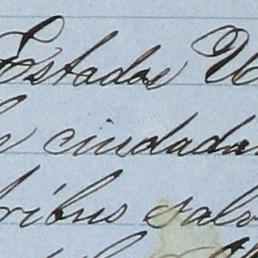 Estados U
ciudadan
ribus salv